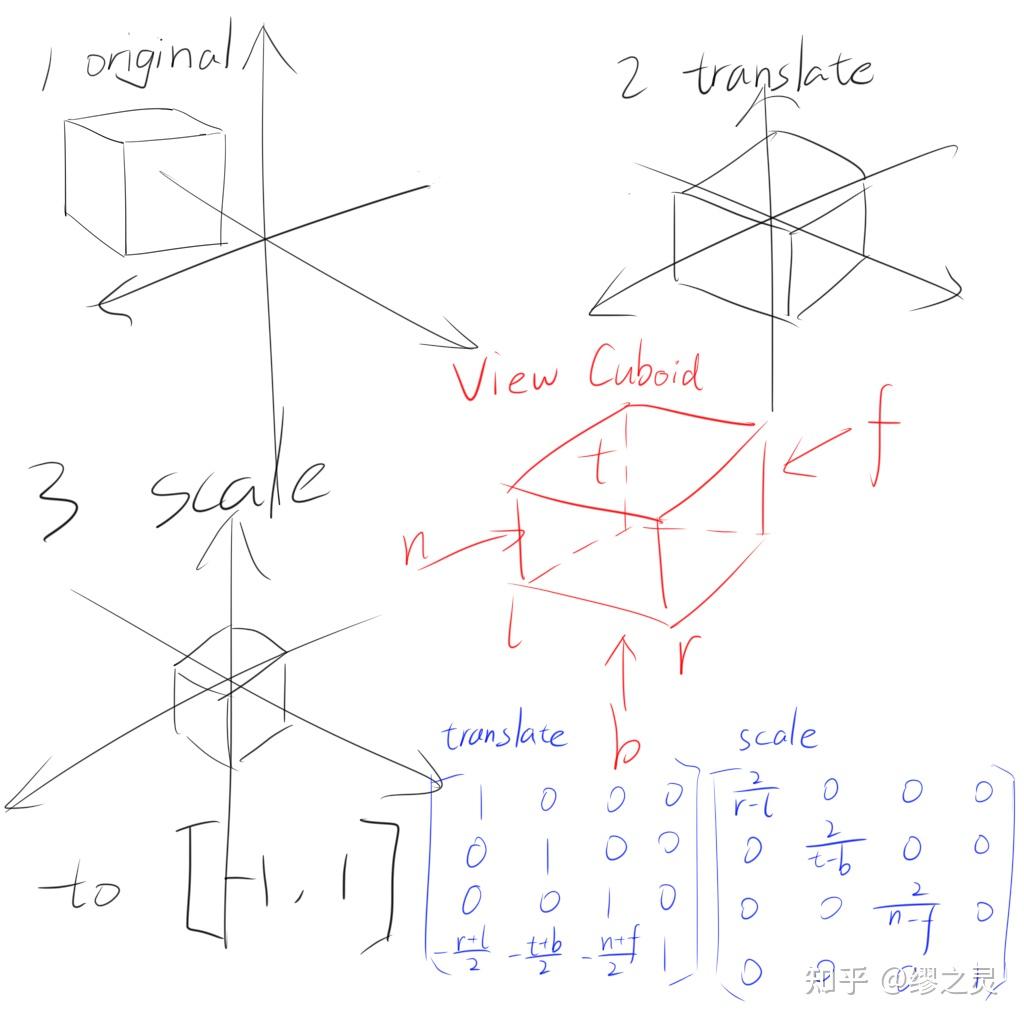 1 original
2 translate
View Cuboid
t
f
n
l
r
b
3 scale
to [-1, 1]
translate
1 0 0 0
0 1 0 0
0 0 1 0
-r+l/2 -t+b/2 -n+f/2 1
scale
2/r-l 0 0 0
0 2/t-b 0 0
0 0 2/n-f 0
0 0 0 1
知乎 @缪之灵